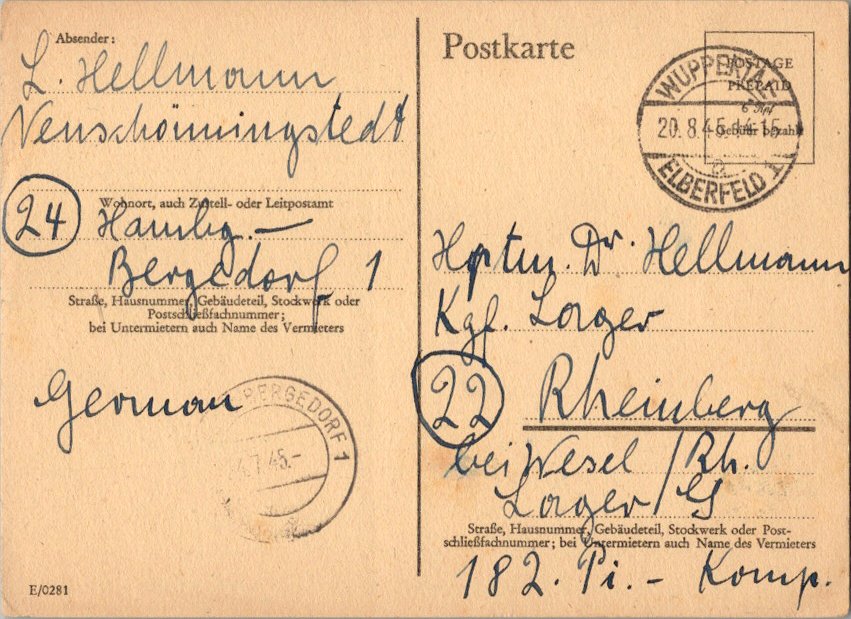 Absender:
L. Hellmann
Neuschönningstedt
Wohnort, auch Zustell- oder Leitpostamt
24 Hambg.—
Bergedorf 1
Straße, Hausnummer, Gebäudeteil, Stockwerk oder
Postschließfachnummer;
bei Untermietern auch Name des Vermieters
German
BERGEDORF 1
4.7.45.-
E/0281
Postkarte
POSTAGE
PREPAID
6 Rpf
Gebühr bezahlt
WUPPERTAL-
20.8.45.14-15
ELBERFELD 1
Hptm. Dr. Hellmann
Kgf. Lager
22 Rheinberg
bei Wesel / Rh.
Lager /
Straße, Hausnummer, Gebäudeteil, Stockwerk oder Post-
schließfachnummer; bei Untermietern auch Name des Vermieters
182. Pi.- Komp.